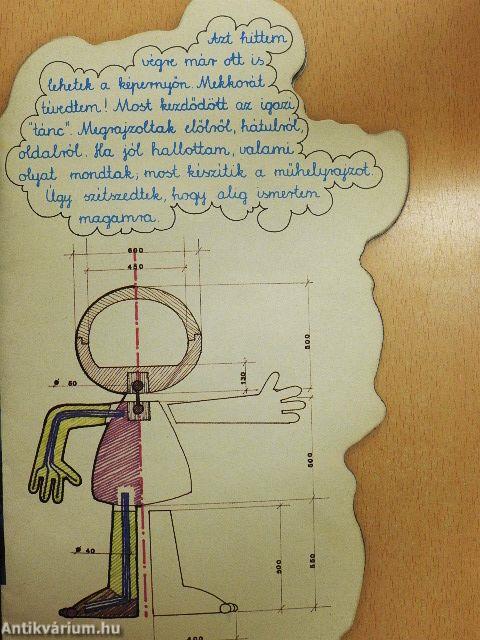 Azt hittem
végre már ott is
lehetek a képernyőn. Mekkorát
tévedtem! Most kezdődött az igazi
"tánc". Megrajzoltak elölről, hátulról,
oldalról. Ha jól hallottam, valami
olyat mondtak, most készítik a műhelyrajzot.
Úgy szétszedtek, hogy alig ismertem
magamra.
600
450
500
130
ø 50
500
ø 40
500
550
400
Antikvárium.hu